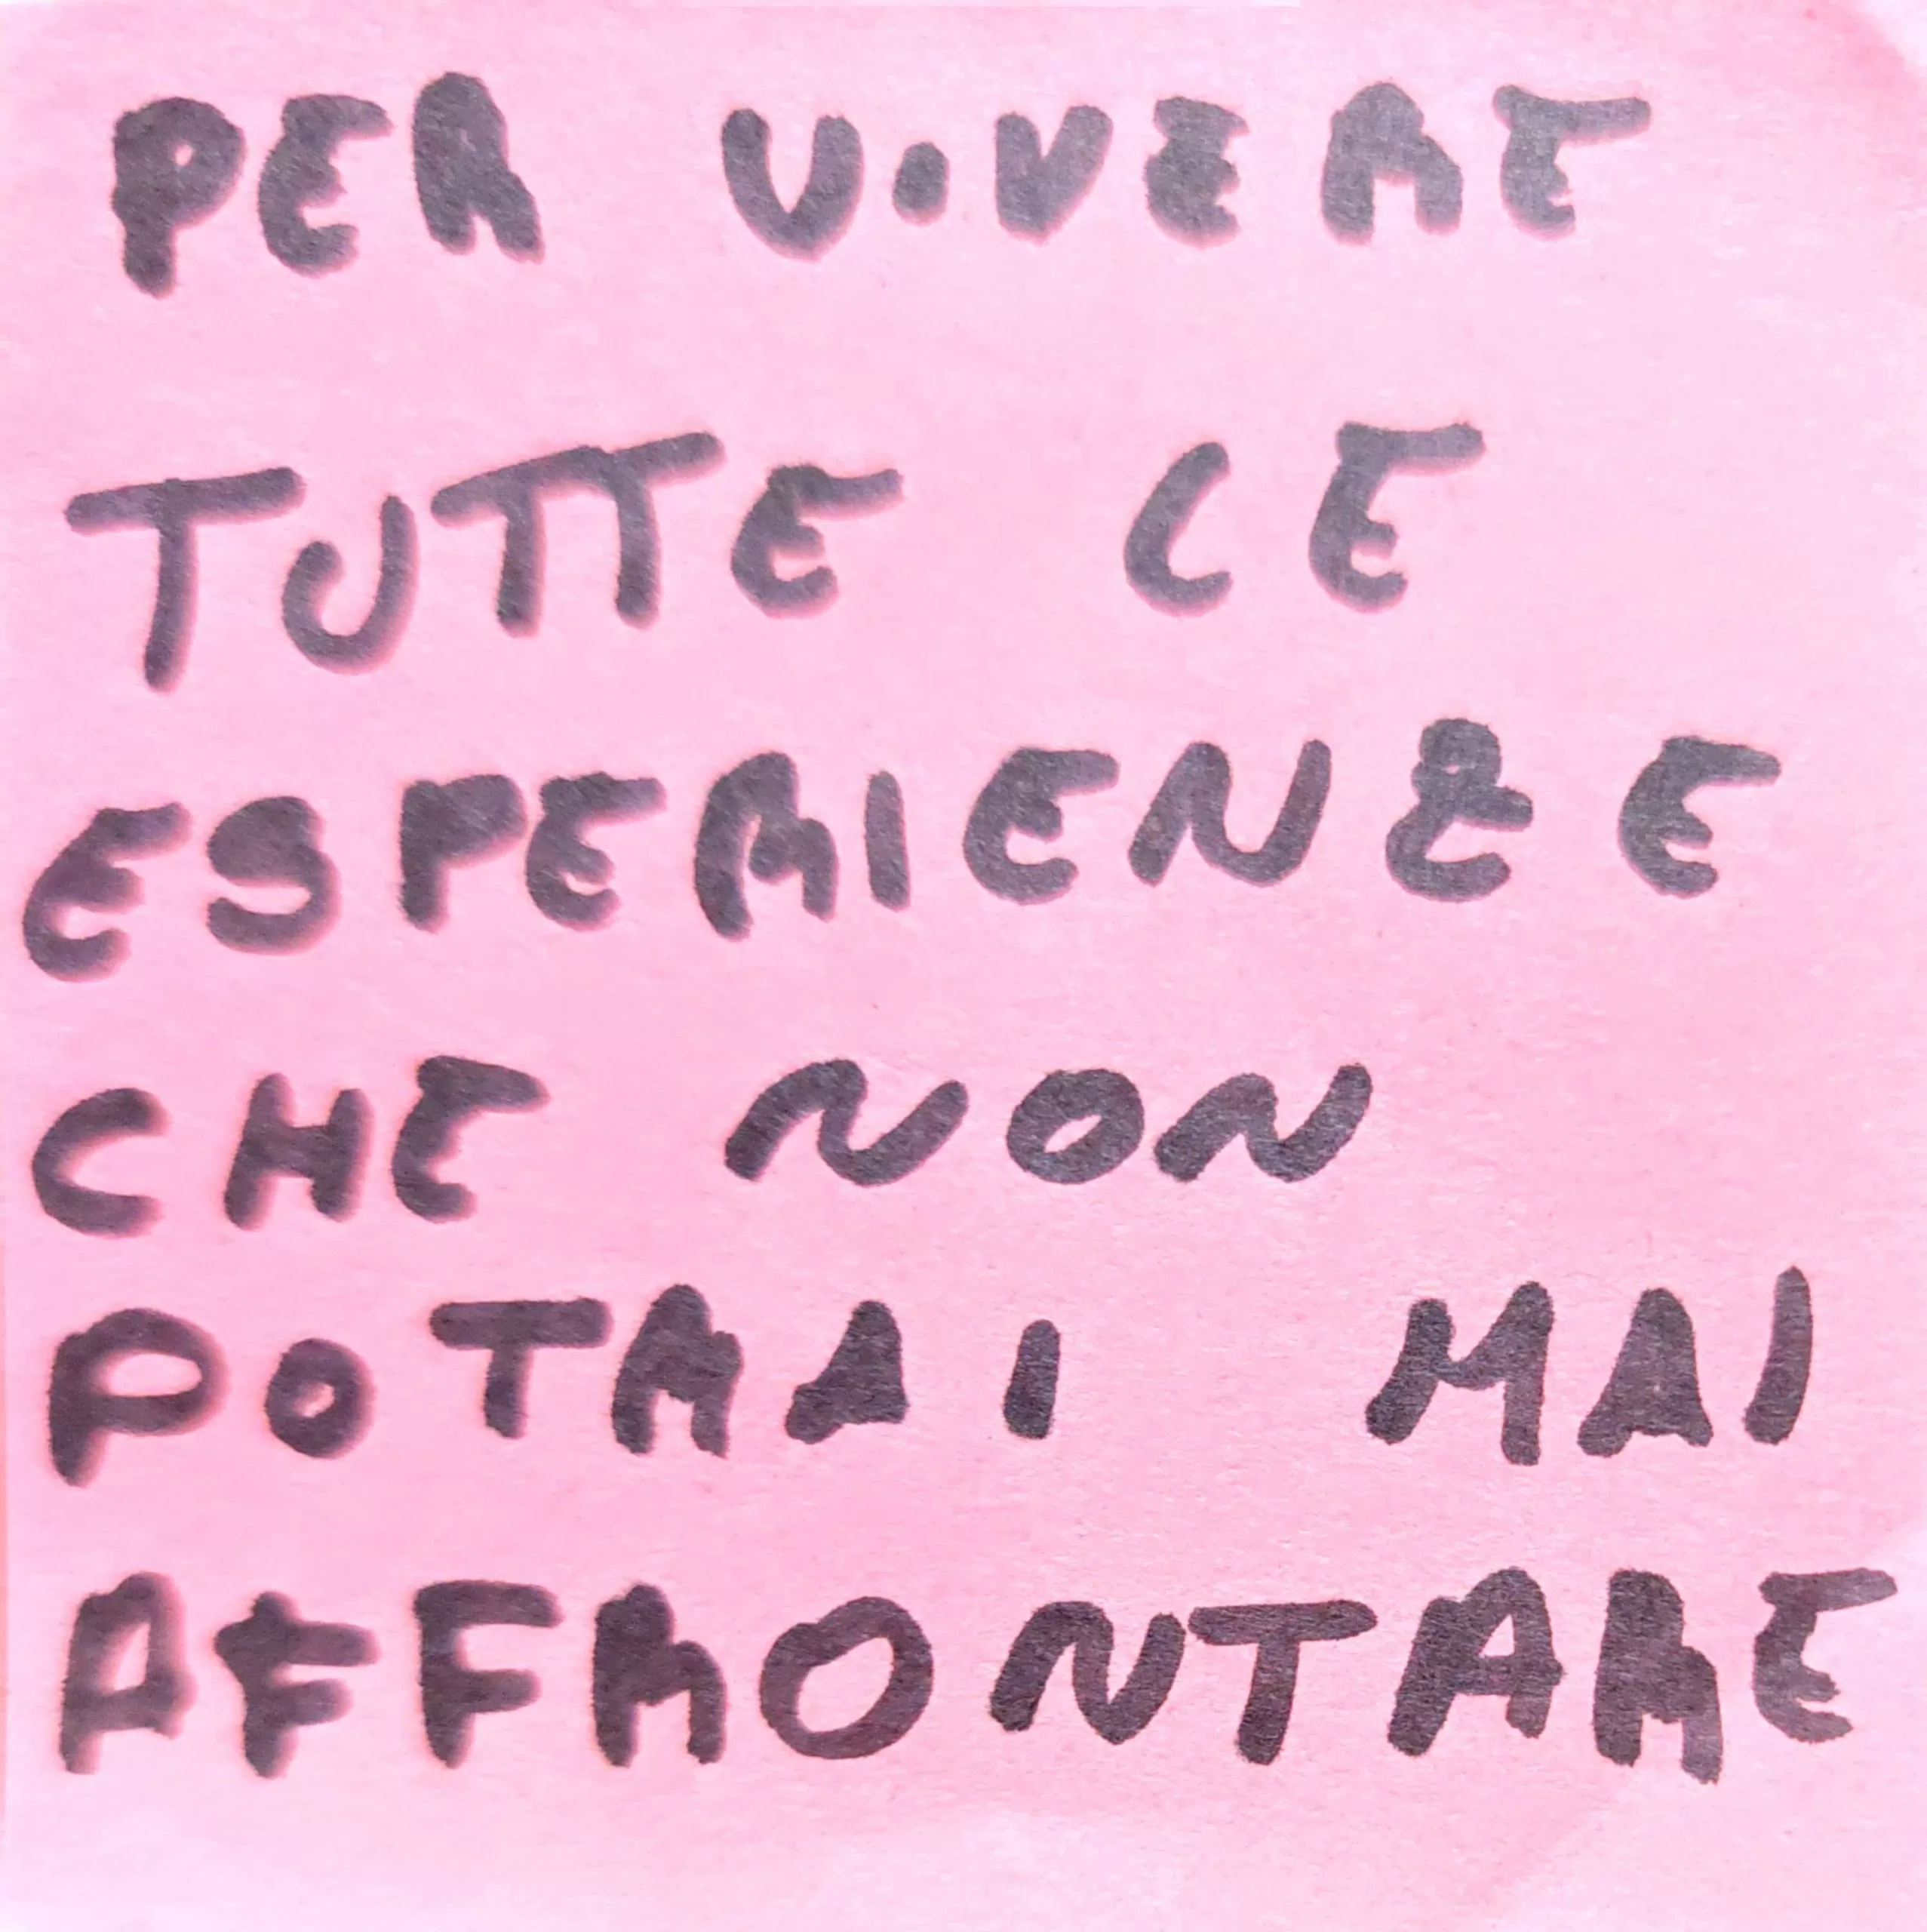 PER VIVERE
TUTTE LE
ESPERIENZE
CHE NON
POTRAI MAI
AFFRONTARE